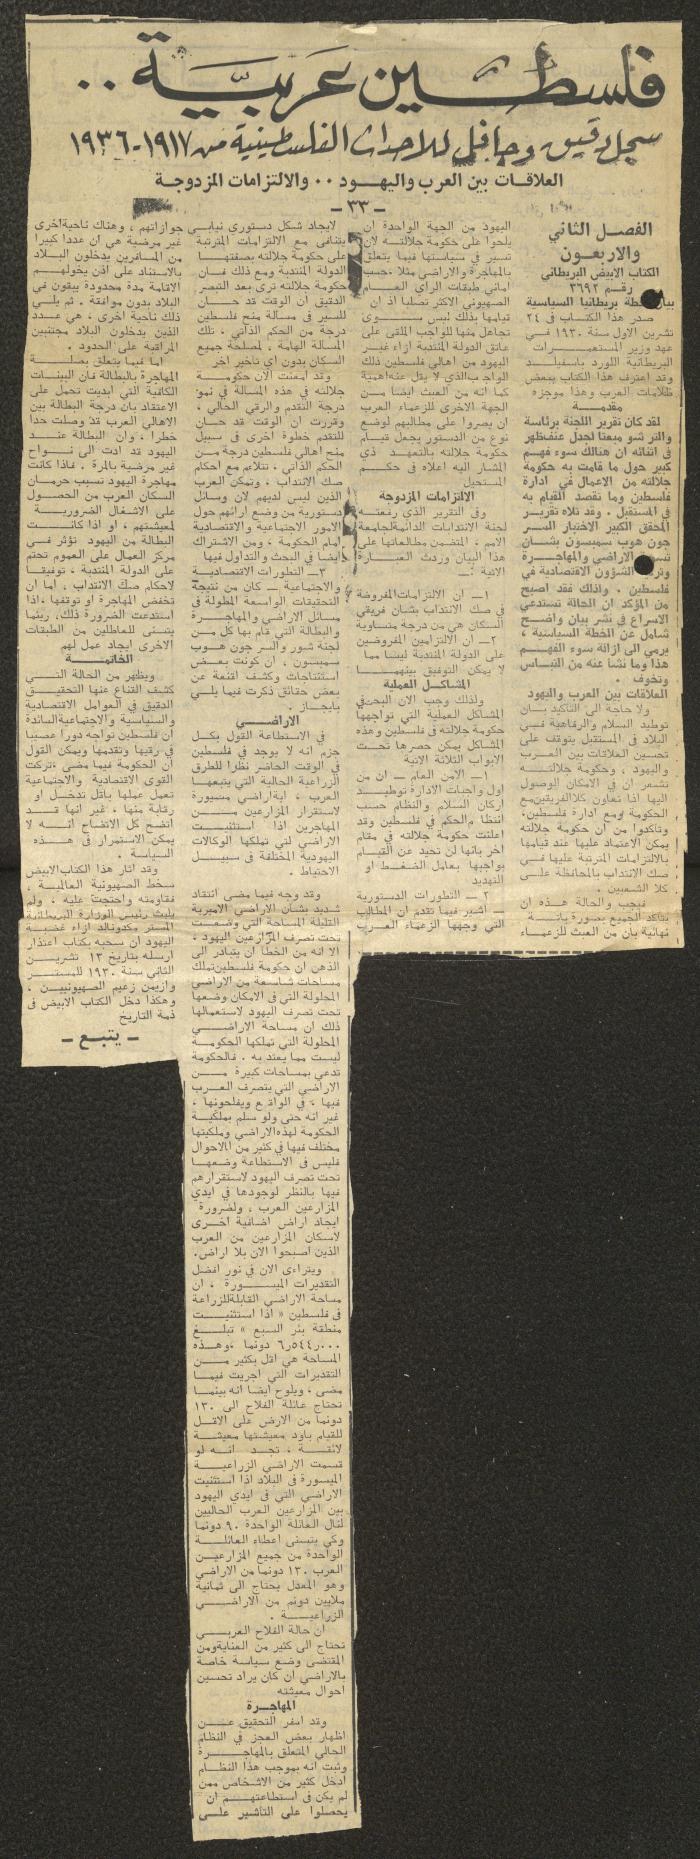 فلسطين عربية ..
سجل دقيق وحافل للاحداث الفلسطينية من ١٩١٧-١٩٣٦
العلاقات بين العرب واليهود .. والالتزامات المزدوجة
- ٣٣ -
الفصل الثاني
والاربعون
الكتاب الابيض البريطاني
رقم ٣٦٩٢
خطة بريطانيا السياسية
صدر هذا الكتاب في ٢٤
تشرين الاول سنة ١٩٣٠ في
عهد وزير المستعمرات
البريطانية اللورد باسفيلد
وقد اعترف هذا الكتاب ببعض
ظلامات العرب وهذا موجزه
مقدمة
لقد كان تقرير اللجنة برئاسة
والتر شو مبعثا لجدل عنيف ظهر
في اثنائه ان هنالك سوء فهم
كبير حول ما قامت به حكومة
جلالته من الاعمال في ادارة
فلسطين وما تقصد القيام به
في المستقبل . وقد تلاه تقرير
المحقق الكبير الاختبار السر
جون هوب سمبسون بشان
الاراضي والمهاجرة
الشؤون الاقتصادية في
فلسطين . ولذلك فقد اصبح
من المؤكد ان الحالة تستدعي
الاسراع في نشر بيان واضح
شامل عن الخطة السياسية ،
يرمي الى ازالة سوء الفهم
هذا وما نشا عنه من التباس
وتخوف .
العلاقات بين العرب واليهود
ولا حاجة الى التاكيد بان
توطيد السلام والرفاهية في
البلاد في المستقبل يتوقف على
تحسين العلاقات بين العرب
واليهود ، وحكومة جلالته
تشعر ان في الامكان الوصول
اليها اذا تعاون كلا الفريقين مع
الحكومة ومع ادارة فلسطين،
وتاكدوا من ان حكومة جلالته
يمكن الاعتماد عليها عند قيامها
بالالتزامات المترتبة عليها في
صك الانتداب بالمحافظة على
كلا الشعبين .
فيجب والحالة هذه ان
يتاكد الجميع بصورة باتة
نهائية بان من العبث للزعماء
اليهود من الجهة الواحدة ان
يلحوا على حكومة جلالته لان
تسير في سياستها فيما يتعلق
بالمهاجرة والاراضي مثلا حسب
اماني طبقات الراي العام
الصهيوني الاكثر تصلبا اذ ان
قيامها بذلك ليس سوى
تجاهل منها للواجب الملقى على
عاتق الدولة المنتدبة ازاء غير
اليهود من اهالي فلسطين ذلك
الواجب الذي لا يقل عنه اهمية
كما انه من العبث ايضا من
الجهة الاخرى للزعماء العرب
ان يصروا على مطالبهم لوضع
نوع من الدستور يجعل قيام
حكومة جلالته بالتعهد ذي
المشار اليه اعلاه في حكم
المستحيل
الالتزامات المزدوجة
وفي التقرير الذي رفعته
لجنة الانتدابات الدائمة لجامعة
الامم ، المتضمن مطالعاتها على
هذا البيان وردت العبارة
الاتية :ــ
١ــ ان الالتزامات المفروضة
في صك الانتداب بشان فريقي
السكان هي من درجة متساوية
٢ــ ان الالتزامين المفروضين
على الدولة المنتدبة ليسا مما
لا يمكن التوفيق بينهما
المشاكل العملية
ولذلك وجب الان البحث في
المشاكل العملية التي تواجهها
حكومة جلالته في فلسطين وهذه
المشاكل يمكن حصرها تحت
الابواب الثلاثة الاتية
١ــ الامن العام ــ ان من
اول واجبات الادارة توطيد
اركان السلام والنظام حسب
انتظام الحكم في فلسطين وقد
اعلنت حكومة جلالته في مقام
اخر بانها لن تحيد عن القيام
بواجبها بعامل الضغط او
التهديد
٢ ــ التطورات الدستورية
ــ اشير فيما تقدم ان المطاليب
التي وجهها الزعماء العرب
لايجاد شكل دستوري نيابي
يتنافى مع الالتزامات المترتبة
على حكومة جلالته بصفتها
الدولة المنتدبة ومع ذلك فان
حكومة جلالته ترى بعد التبصر
الدقيق ان الوقت قد حان
للسير في مسالة منح فلسطين
درجة من الحكم الذاتي ، تلك
المسالة الهامة ، لمصلحة جميع
السكان بدون اي تاخير اخر
وقد امعنت الان حكومة
جلالته في هذه المسالة في نمو
درجة التقدم والرقي الحالي ،
وقررت ان الوقت قد حان
للتقدم خطوة اخرى في سبيل
منح اهالي فلسطين درجة من
الحكم الذاتي ، تتلاءم مع احكام
صك الانتداب ، وتمكن العرب
الذين ليس لديهم لان وسائل
دستورية من وضع ارائهم حول
الامور الاجتماعية والاقتصادية
امام الحكومة ، ومن الاشتراك
ايضا في البحث والتداول فيها
٣ــ التطورات الاقتصادية
والاجتماعية ــ كان من نتيجة
التحقيقات الواسعة المطولة في
مسائل الاراضي والمهاجرة
والبطالة التي قام بها كل من
لجنة شو والسر جون هوب
سمبسون ، ان كونت بعض
استنتاجات وكشف القنعة عن
بعض حقائق ذكرت فيما يلي
بايجاز .
الاراضي
في الاستطاعة القول بكل
جزم انه لا يوجد في فلسطين
في الوقت الحاضر نظرا للطرق
الزراعية الحالية التي يتبعها
العرب ، اية اراضي ميسورة
لاستقرار المزارعين من
المهاجرين اذا استثنيت
الاراضي التي تملكها الوكالات
اليهودية المختلفة في سبيل
الاحتياط .
وقد وجه فيما مضى انتقاد
شديد بشان الاراضي الاميرية
القليلة المساحة التي وضعت
تحت تصرف المزارعين اليهود ،
الا انه من الخطا ان يتبادر الى
الذهن ان حكومة فلسطين تملك
مساحات شاسعة من الاراضي
المحلولة التي في الامكان وضعها
تحت تصرف اليهود لاستعمالها
ذلك ان مساحة الاراضي
المحلولة التي تملكها الحكومة
ليست مما يعتد به . فالحكومة
تدعي بمساحات كبيرة من
الاراضي التي يتصرف العرب
فيها ، في الواقع ويفلحونها ،
غير انه حتى ولو سلم بملكية
الحكومة لهذه الاراضي وملكيتها
مختلف فيها في كثير من الاحوال
فليس في الاستطاعة وضعها
تحت تصرف اليهود لاستقرارهم
فيها بالنظر لوجودها في ايدي
المزارعين العرب ، ولضرورة
ايجاد اراض اضافية اخرى
لاسكان المزارعين من العرب
الذين اصبحوا الان بلا اراض.
ويتراءى الان في نور افضل
التقديرات الميسورة ، ان
مساحة الاراضي القابلة للزراعة
في فلسطين « اذا استثنيت
منطقة بئر السبع » تبلغ
٦,٥٤٤,٠٠٠ دونما ،وهذه
المساحة هي اقل بكثير من
التقديرات التي اجريت فيما
مضى ، ويلوح ايضا انه بينما
تحتاج عائلة الفلاح الى ١٣٠
دونما من الارض على الاقل
للقيام باود معيشتها معيشة
لائقة ، تجد انه لو
قسمت الاراضي الزراعية
الميسورة في البلاد اذا استثنيت
الاراضي التي في ايدي اليهود
بين المزارعين العرب الحاليين
لنال العائلة الواحدة ٩٠ دونما
وكي يتسنى اعطاء العائلة
الواحدة من جميع المزارعين
العرب ١٣٠ دونما من الاراضي
وهو المعدل يحتاج الى ثمانية
ملايين دونم من الاراضي
الزراعية .
ان حالة الفلاح العربي
تحتاج الى كثير من العناية ومن
المقتضى وضع سياسة خاصة
بالاراضي ان كان يراد تحسين
احوال معيشته
المهاجرة
وقد اسفر التحقيق عن
اظهار بعض العجز في النظام
الحالي المتعلق بالمهاجرة
وثبت انه بموجب هذا النظام
ادخل كثير من الاشخاص ممن
لم يكن في استطاعتهم ان
يحصلوا على التاشير على
جوازاتهم ، وهناك ناحية اخرى
غير مرضية هي ان عددا كبيرا
من المسافرين يدخلون البلاد
بالاستناد على اذن يخولهم
الاقامة مدة محدودة يبقون في
البلاد بدون موافقة . ثم يلي
ذلك ناحية اخرى ، هي عدد
الذين يدخلون البلاد مجتنبين
المراقبة على الحدود .
اما فيما يتعلق بصلة
المهاجرة بالبطالة فان البينات
الكافية التي ابديت تحمل على
الاعتقاد بان درجة البطالة بين
الاهالي العرب قد وصلت حدا
خطرا ، وان البطالة عند
اليهود قد ادت الى نواح
غير مرضية بالمرة . فاذا كانت
مهاجرة اليهود تسبب حرمان
السكان العرب من الحصول
على الاشغال الضرورية
لمعيشتهم ، او اذا كانت
البطالة من اليهود تؤثر في
مركز العمال على العموم تحتم
على الدولة المنتدبة ، توفيقا
لاحكام صك الانتداب ، اما ان
تخفض المهاجرة او توقفها ،اذا
استدعت الضرورة ذلك، ريثما
يتسنى للعاطلين من الطبقات
الاخرى ايجاد عمل لهم
الخاتمة
ويظهر من الحالة التي
كشف القناع عنها التحقيق
الدقيق في العوامل الاقتصادية
والسياسية والاجتماعية السائدة
ان فلسطين تواجه دورا عصيبا
في رقيها وتقدمها ويمكن القول
ان الحكومة فيما مضى ،تركت
القوى الاقتصادية والاجتماعية
تعمل عملها باقل تدخل او
رقابة منها ، غير انها قد
اتضح كل الاتضاح انه لا
يمكن الاستمرار في هذه
السياسة .
وقد اثار هذا الكتاب الابيض
سخط الصهيونية العالمية ،
فقاومته واحتجت عليه ، ولم
يلبث رئيس الوزارة البريطانية
المستر مكدونالد ازاء غضبة
اليهود ان سحبه بكتاب اعتذار
ارسله بتاريخ ١٣ تشرين
الثاني سنة ١٩٣٠ للمستر
وايزمن زعيم الصهيونيين ،
وهكذا دخل الكتاب الابيض في
ذمة التاريخ
ــ يتبع ــ